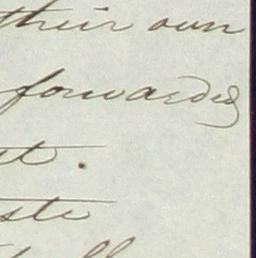 their own
forwarded
st.
ste